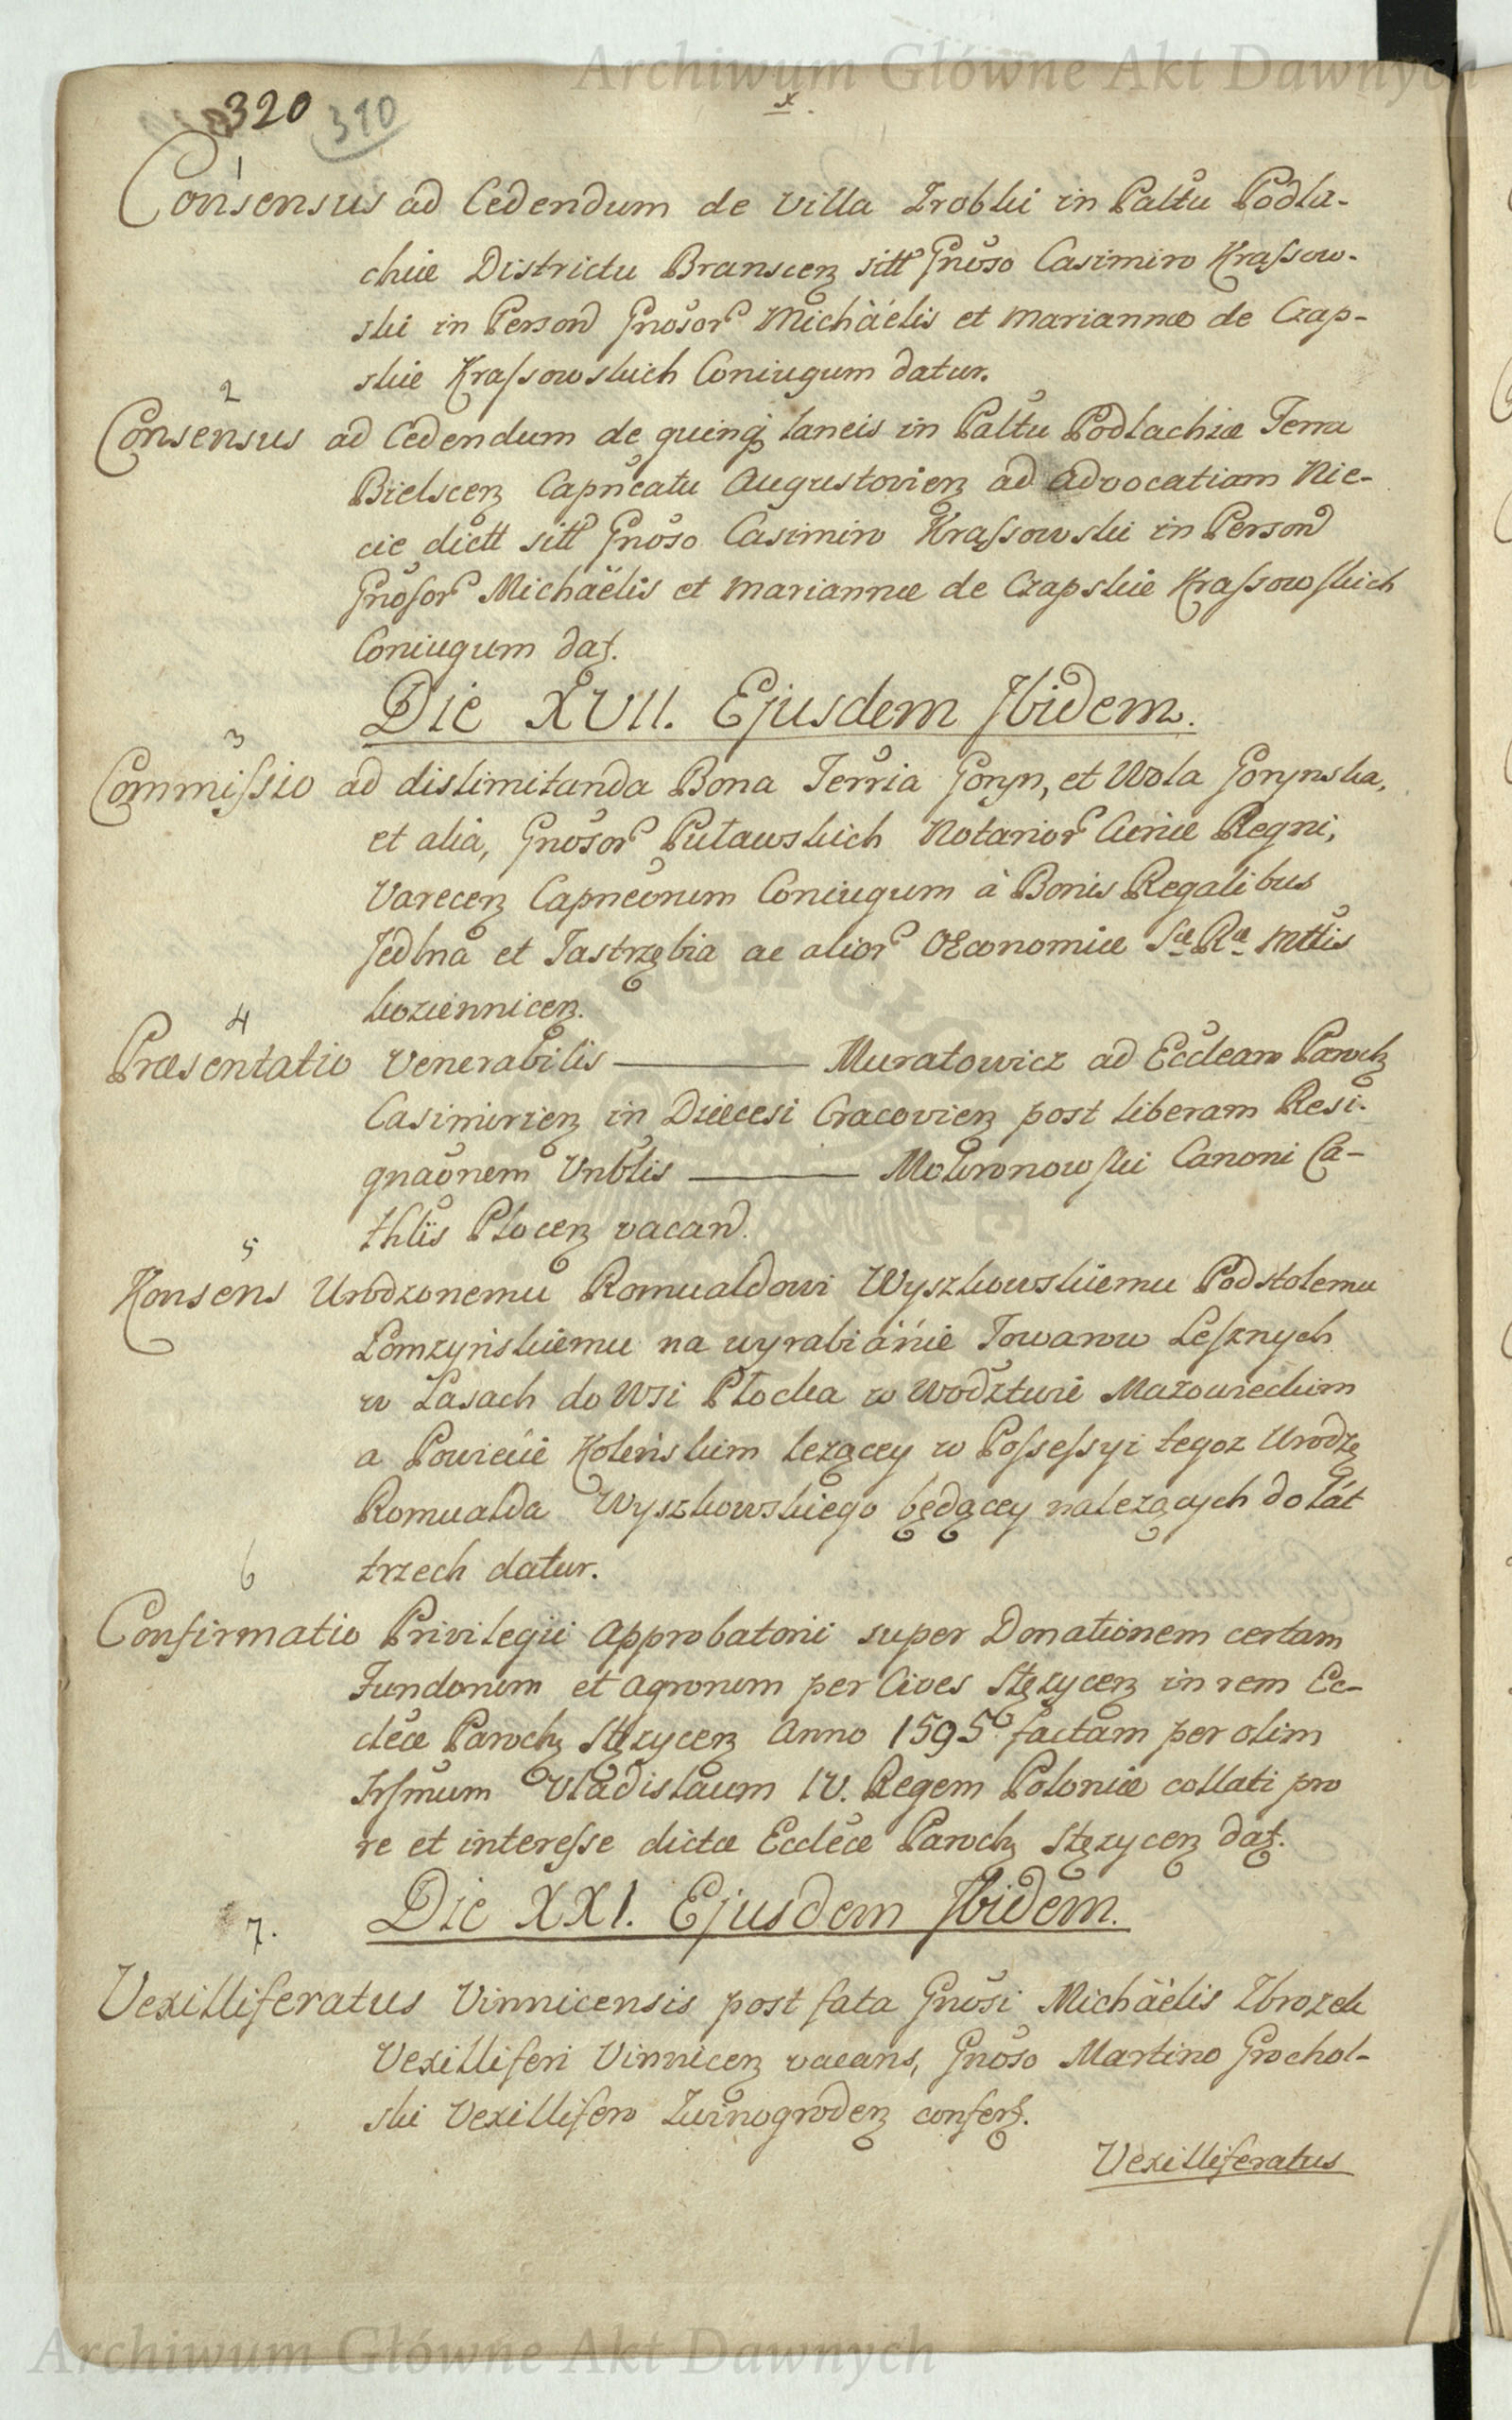 Archiwum Główne Akt Dawnych
320 310
x.
1
Consensus ad Cedendum de Villa Zrobki in Paltu Podla-
chiæ Districtu Branscen sitt Gnoso Casimiro Krassow-
ski in Person Gnosor Michaelis et Mariannæ de Czap-
skie Krassowskich Coniugum datur.
2
Consensus ad Cedendum de quinq laneis in Paltu Podlachiæ Terra
Bielscen Capneatu Augustovien ad Advocatiam Nie-
cie dictt sitt Gnoso Casimiro Krassowski in Person
Gnosor Michaëlis et Mariannæ de Czapskie Krassowskich
Coniugum dat.
Die XVII. Ejusdem Ibidem.
3
Commissio ad dislimitanda Bona Terria Goryn, et Wola Gorynska,
et alia, Gnosor Puławskich Notarior Curiæ Regni,
Varecen Capneorum Coniugum à Bonis Regalibus
Jedlna et Jastrzębia ac alior Oeconomiæ Sæ Ræ Mttis
kozienicen.
4
Præsentatio Venerabilis ——— Muratowicz ad Eccleam Paroch
Casimirien in Diæcesi Cracovien post liberam Resi-
gnaonem Vnblis ——— Mokronowski Canoni Ca-
thlis Plocen vacand.
5
Konsens Urodzonemu Romualdowi Wyszkowskiemu Podstolemu
Łomzyńskiemu na wyrabianie Towarow Lesznych
w Lasach do Wsi Płocka w Wodztwie Mazowieckim
a Powiecie Koleńskim lezącey w Possessyi tegoz Urodz
Romualda Wyszkowskiego będącey nalezących do lát
trzech datur.
6
Confirmatio Privilegii Approbatorii super Donationem certam
Fundorum et Agrorum per Cives Stęzycen in rem Ec-
cleæ Paroch Stęzycen Anno 1595 factam per olim
Srsmum Vladislaum IV. Regem Poloniæ collati pro
re et interesse dictæ Eccleæ Paroch Stęzycen dat.
Die XXI. Ejusdem Ibidem.
7.
Vexilliferatus Vinnicensis post fata Gnosi Michaëlis Zbrozek
Vexilliferi Vinnicen vacans, Gnoso Martino Grochol-
ski Vexillifero Zwinogroden confert.
Vexilliferatus
Archiwum Główne Akt Dawnych